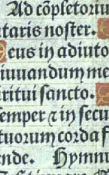 Ad cõpletoriu
taris noster.
eus in adiuto
iuuandum me
ritui sancto.
emper ⁊ in secu
tuorum corda f
nde. Hymn